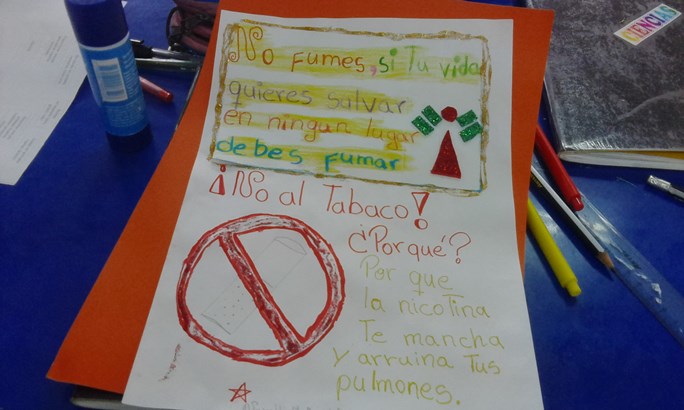 No fumes, si Tu vida
quieres salvar
en ningun lugar
debes fumar
¡No al Tabaco!
¿Porqué?
Por que
la nicotina
Te mancha
y arruina Tus
pulmones.
CIENCIAS